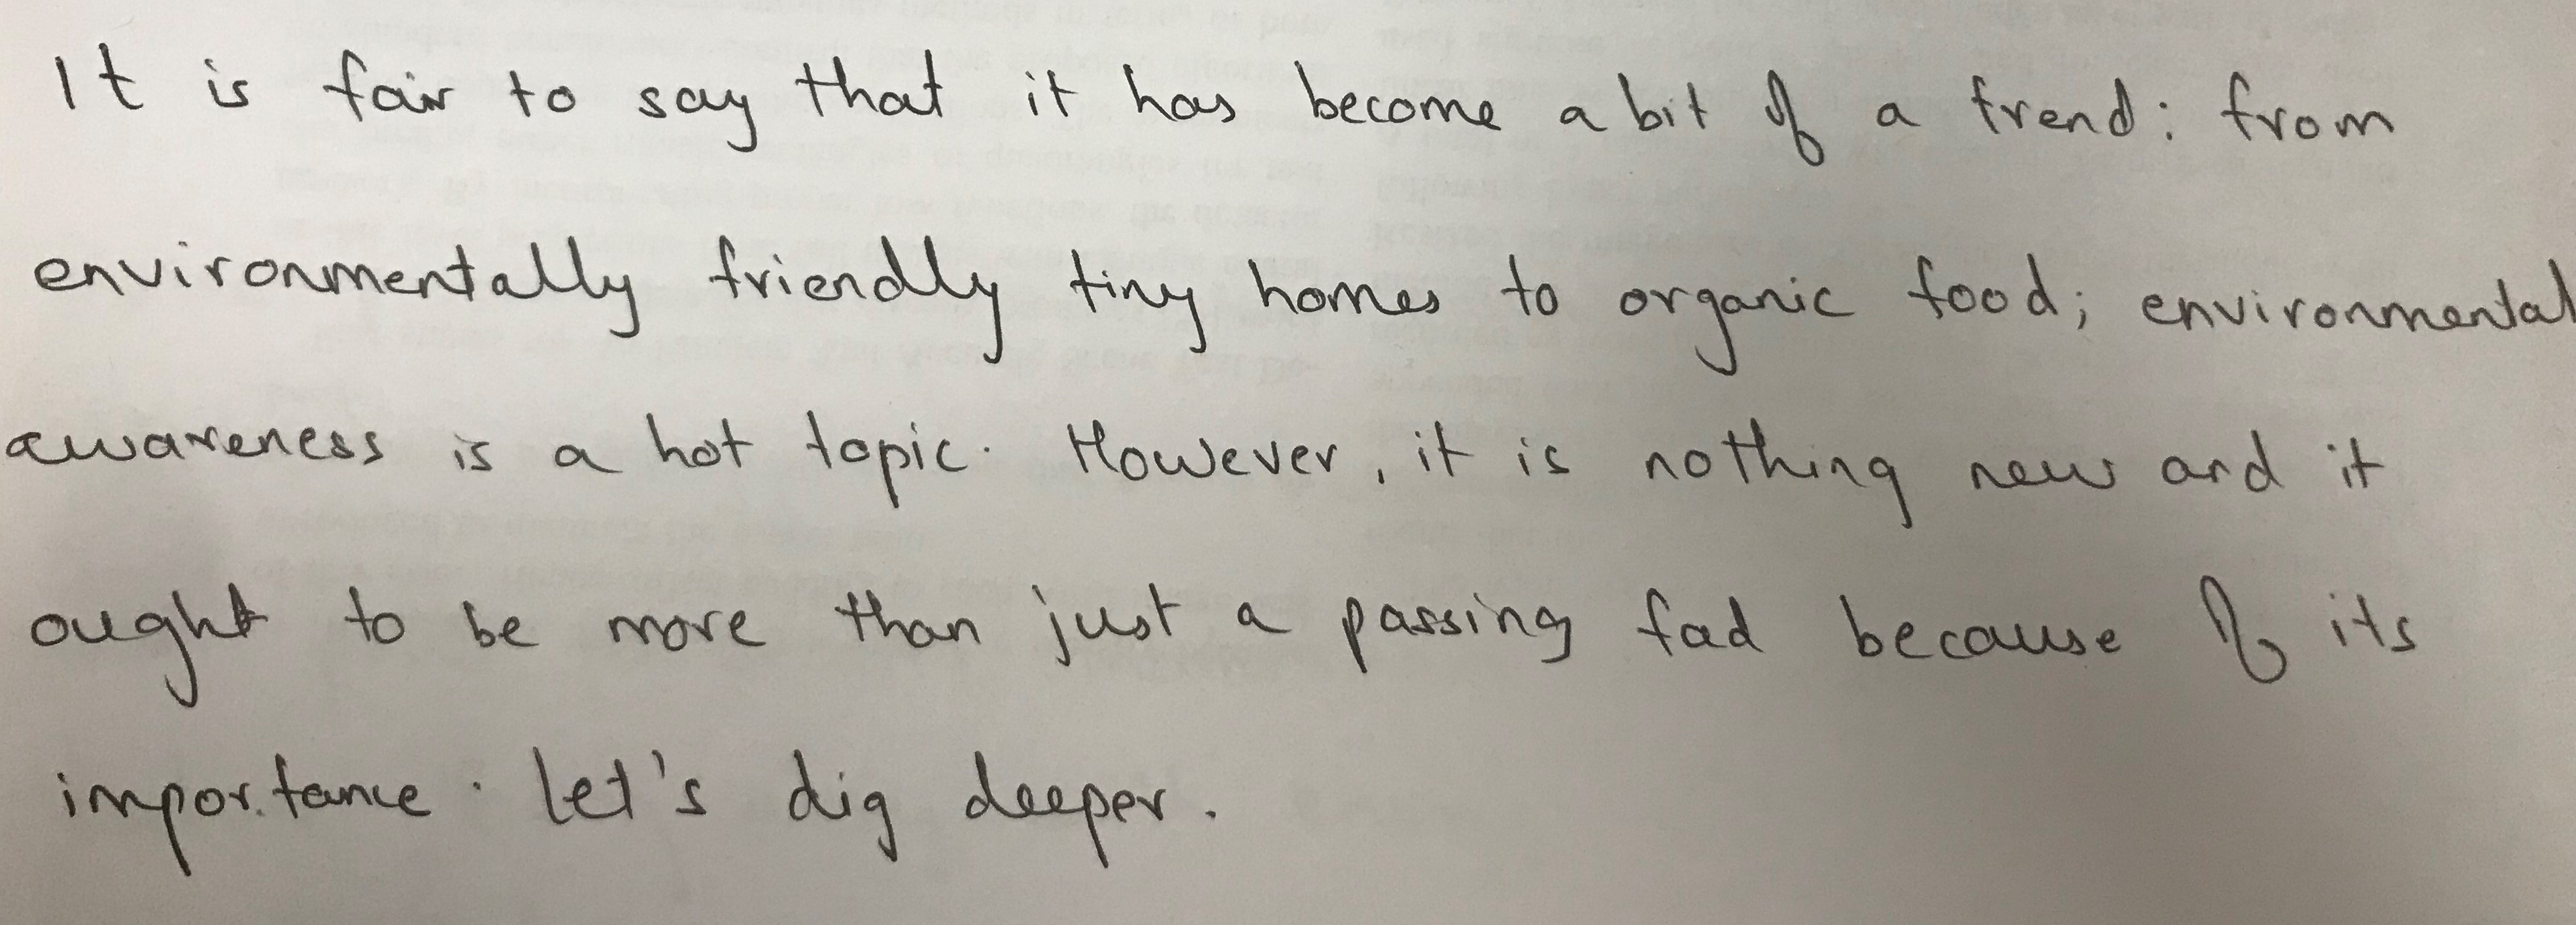 It is fair to say that it has become a bit of a trend: from
environmentally friendly tiny homes to organic food; environmental
awareness is a hot topic. However, it is nothing new and it
ought to be more than just a passing fad because of its
importance. Let's dig deeper.